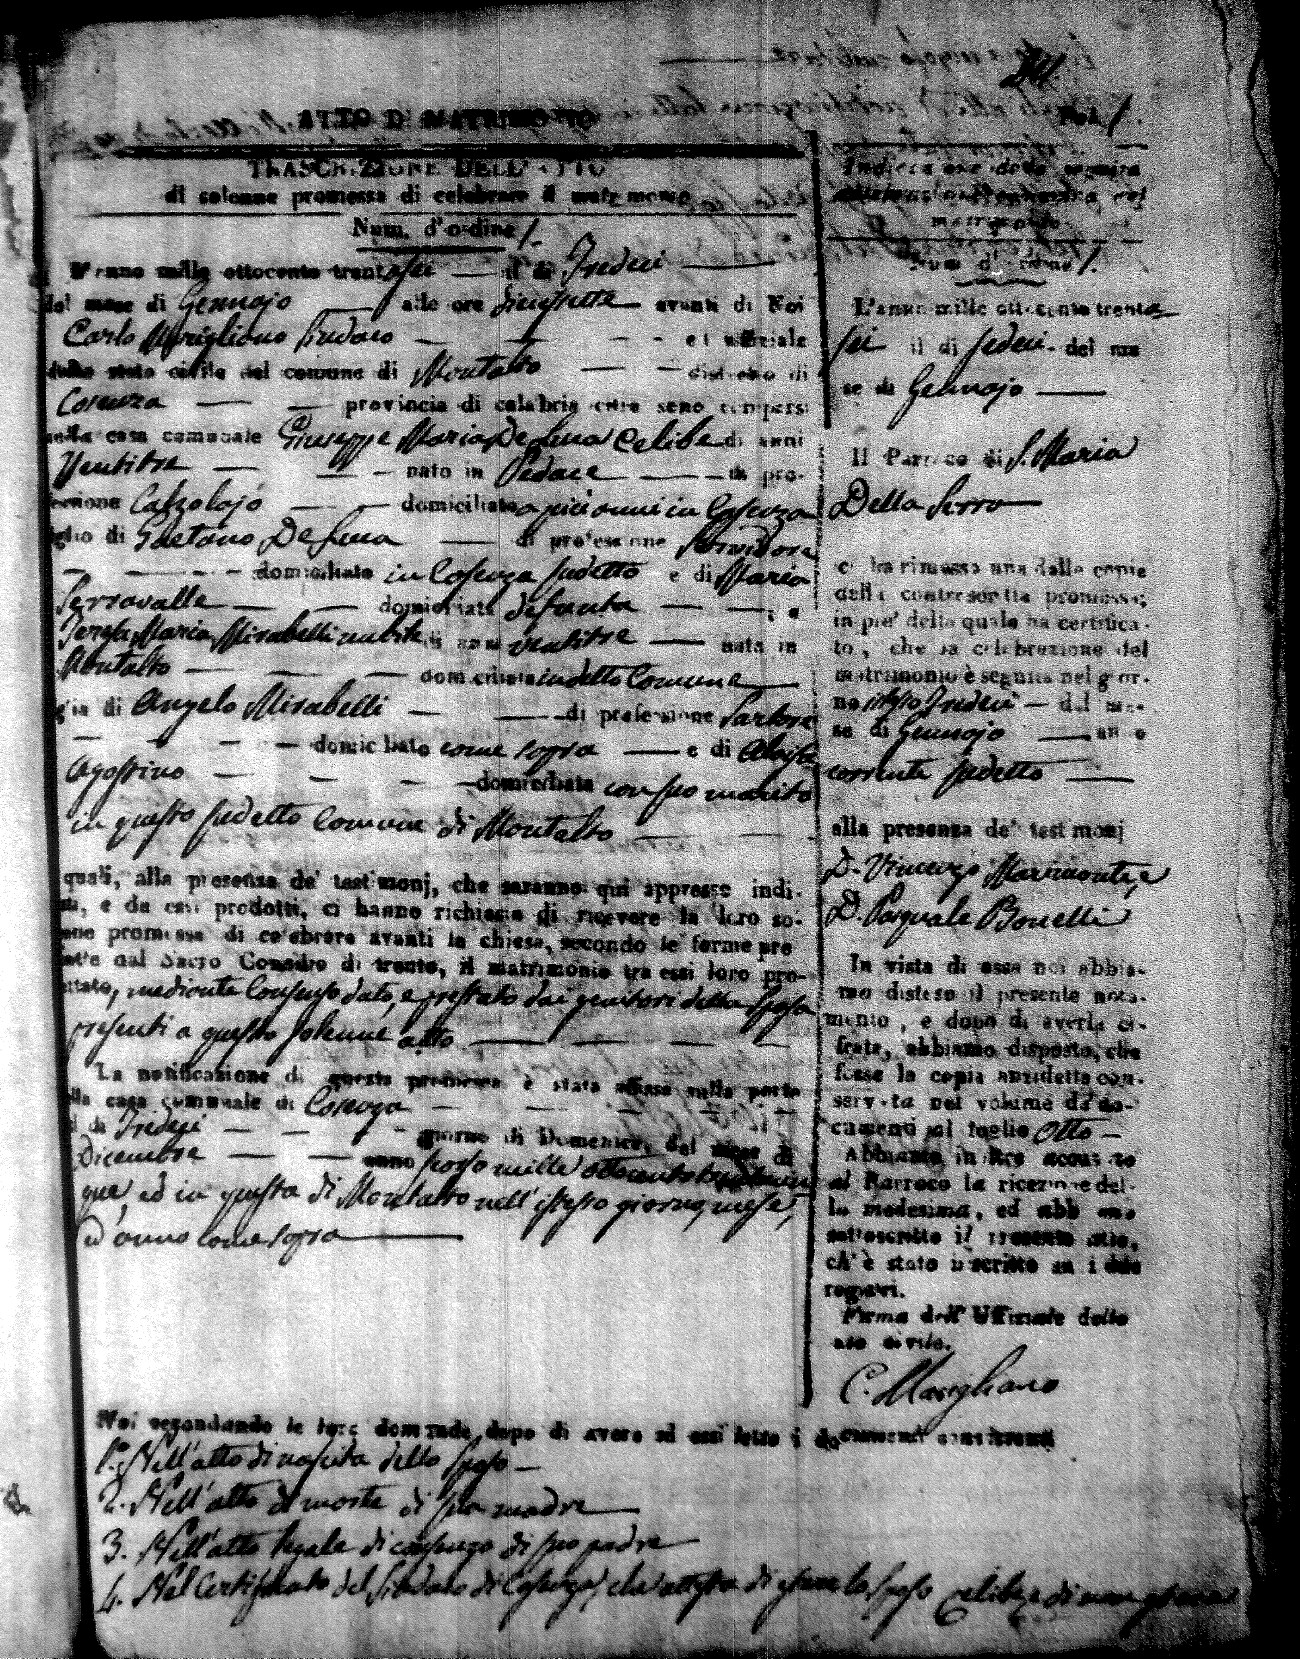 ATTO DI MATRIMONIO
TRASCRIZIONE DELL' ATTO
di solenne promessa di celebrare il matrimonio
Num. d'ordine 1.
L'anno mille ottocento trentasei il di Tredeci
del mese di Gennajo alle ore avanti di Noi
Carlo Marigliano Sindaco ed uffiziale
dello stato civile del comune di Montalto distretto di
Cosenza provincia di calabria citra sono comparsi
nella casa comunale Giuseppe Maria De Luca Celibe di anni
Ventitre nato in Pedace di pro-
fessione Calzolajo domiciliato a più anni in Cosenza
figlio di Gaetano De Luca di professione
domiciliato in Cosenza sudetto e di Maria
Serravalle domiciliata defunta ; e
Teresa Maria Mirabelli nubile di anni ventitre nata in
Montalto domiciliata in detto Comune
figlia di Angelo Mirabelli di professione Sartore
domiciliato come sopra e di
Agostino domiciliata con suo marito
in questo sudetto Comune di Montalto
quali, alla presenza de' testimonj, che saranno qui appresso indi-
cati, e da essi prodotti, ci hanno richiesto di ricevere la loro so-
lenne promessa di celebrare avanti la chiesa, secondo le forme pre
scritte dal Sacro Concilio di trento, il matrimonio tra essi loro pro-
gettato, mediante Consenso dato, e prestato dai genitori della Sposa
presenti a questo solenne atto
La notificazione di questa promessa è stata affissa sulla porta
della casa comunale di Cosenza
il di Tredeci giorno di Domenica, del mese di
Dicembre anno scorso mille ottocento trentacin
que, ed in questa di Montalto nell'istesso giorno, mese,
ed anno come sopra
Noi secondando le loro domande, dopo di avere ad essi letto i documenti consistenti
1.° Nell'atto di nascita dello sposo
2. Nell'atto di morte di sua madre
3. Nell'atto legale di consenso di suo padre
4. Nel Certificato del Sindaco di Cosenza, che attesta di essere lo sposo Celibe,
Fol. 1.
Indicazione della seguita
celebrazione canonica del
matrimonio
Num. d'ordine 1.
L'anno mille ottocento trenta
sei il di Tredeci del me
se di Gennajo
Il Parroco di S. Maria
Della Serra
ci ha rimesso una delle copie
della controscritta promessa;
in pie' della quale ha certifica-
to, che la celebrazione del
matrimonio è seguita nel gior-
no istesso Tredeci del me-
se di Gennajo anno
corrente sudetto
alla presenza de' testimonj
D. Vincenzo
D. Pasquale Bonelli
In vista di essa noi abbia-
mo disteso il presente nota-
mento, e dopo di averla ci-
frata, abbiamo disposto, che
fosse la copia anzidetta con-
servata nel volume da' do-
cumenti al foglio Otto
Abbiamo inoltre accusato
al Parroco la ricezione del-
la medesima, ed abbiamo
sottoscritto il presente atto,
ch' è stato inscritto su i due
registri.
Firma dell' Uffiziale dello
stato civile.
C. Marigliano